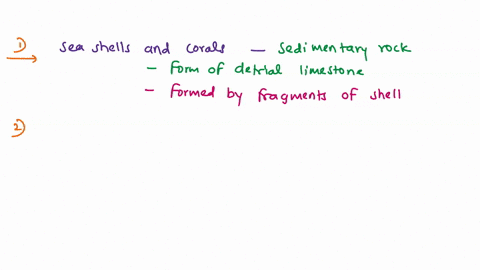 1) Sea shells and corals — Sedimentary rock
- Form of detrial limestone
- Formed by fragments of shell
2)